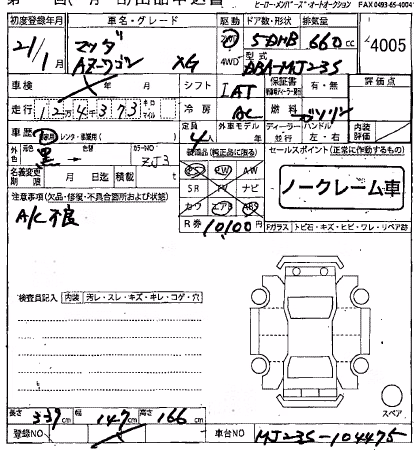 FAX 0493-65-4004
初度登録年月 車名・グレード 駆動 ドア数・形状 排気量
21/1 マツダ AZワゴン XG 2WD 4WD 5 DHB 660cc 4005
型式 DBA-MJ23S
車検 年 月 シフト IAT 保証書 有・無 評価点
走行 12万4千373 キロ マイル 冷房 AC 燃料 ガソリン
車歴 自家 レンタ・
定員 4人 外車モデル ディーラー 並行 ハンドル 左・右 内装評価
外色 黒 色替 カラーNO. ZJ3
装備品(純正品に限る)
セールスポイント(正常に作動するもの)
PS PW AW
名義変更期限 月 日迄 積載 t
SR TV ナビ
ノークレーム車
注意事項(欠品・修復・不具合箇所および状態)
カワ エアB ABS
A/C不良
R券 10100円
Fガラス トビ石・キズ・ヒビ・ワレ・リペア跡
検査員記入 内装 汚レ・スレ・キズ・キレ・コゲ・穴
スペア
長さ 339cm 幅 147cm 高さ 166cm
登録NO 車台NO MJ23S-104475